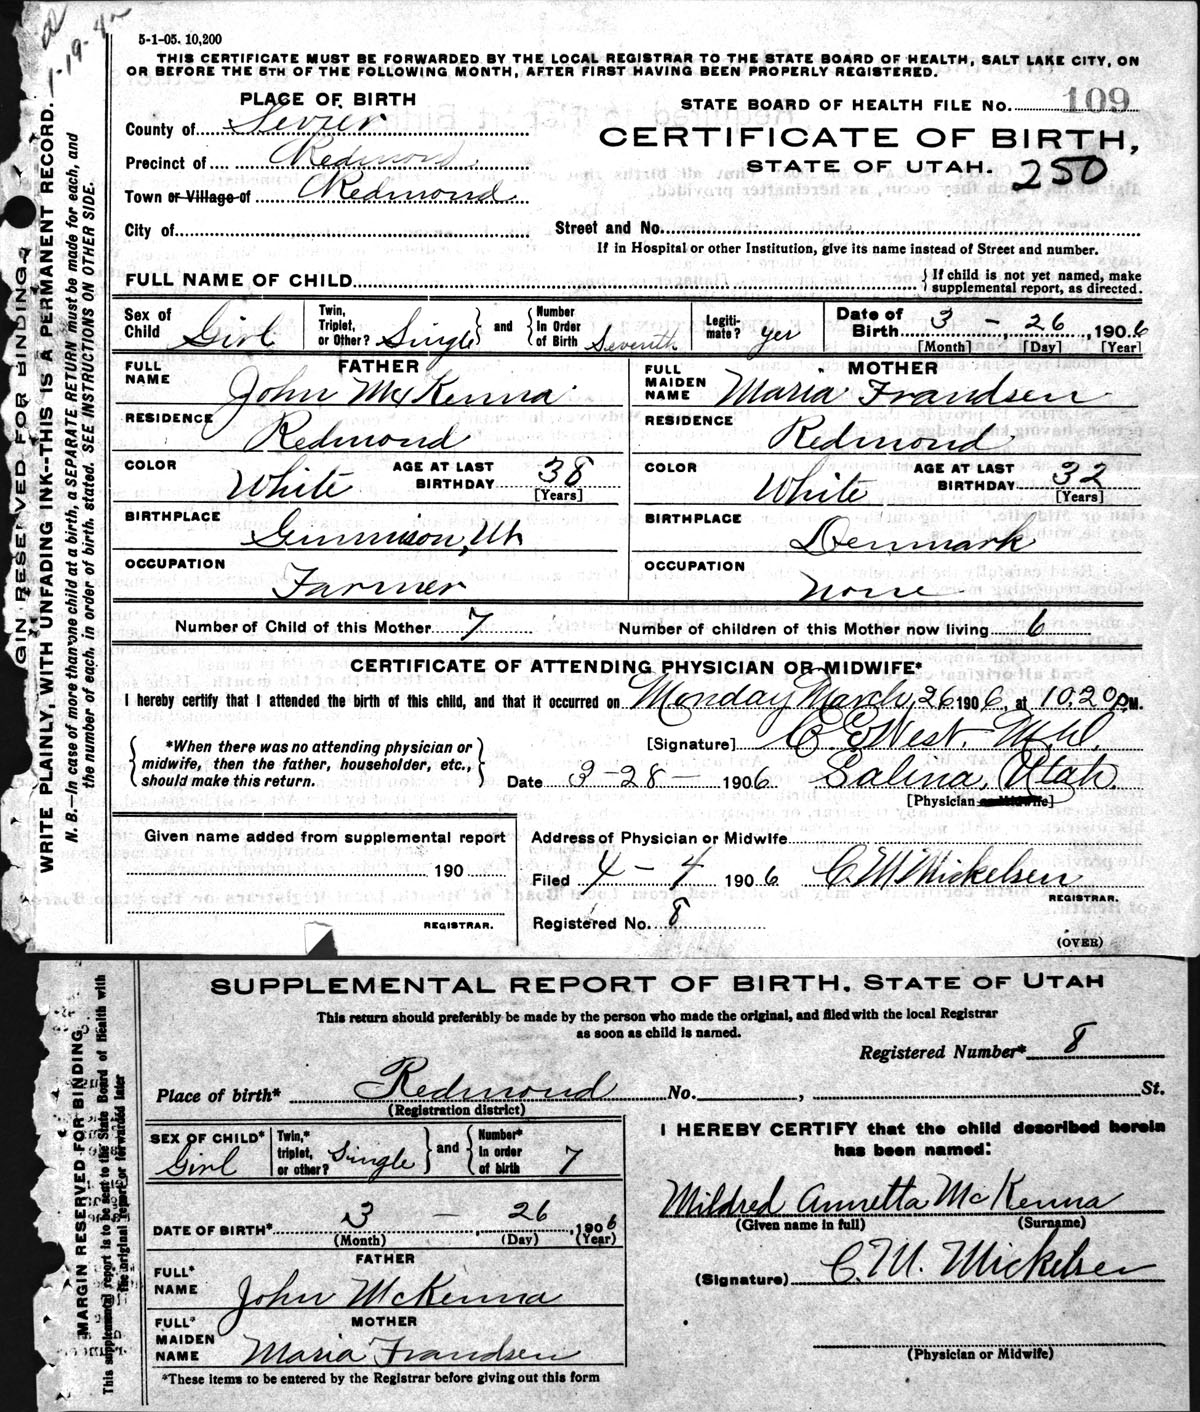 1-19-
5-1-05. 10,200
THIS CERTIFICATE MUST BE FORWARDED BY THE LOCAL REGISTRAR TO THE STATE BOARD OF HEALTH, SALT LAKE CITY, ON
OR BEFORE THE 5TH OF THE FOLLOWING MONTH, AFTER FIRST HAVING BEEN PROPERLY REGISTERED.
PLACE OF BIRTH
STATE BOARD OF HEALTH FILE NO. 109
County of Sevier
CERTIFICATE OF BIRTH,
Precinct of Redmond
STATE OF UTAH. 250
Town or Village of Redmond
City of
Street and No.
If in Hospital or other Institution, give its name instead of Street and number.
FULL NAME OF CHILD { If child is not yet named, make supplemental report, as directed.
Sex of Child Girl Twin, Triplet, or Other? Single } and { Number In Order of Birth Seventh Legiti- mate? yes Date of Birth 3 - 26, 1906
[Month] [Day] [Year]
FATHER MOTHER
FULL NAME John McKenna FULL MAIDEN NAME Maria Frandsen
RESIDENCE Redmond RESIDENCE Redmond
COLOR White AGE AT LAST BIRTHDAY 38 [Years] COLOR White AGE AT LAST BIRTHDAY 32 [Years]
BIRTHPLACE Gunnison, Ut BIRTHPLACE Denmark
OCCUPATION Farmer OCCUPATION None
Number of Child of this Mother 7 Number of children of this Mother now living 6
CERTIFICATE OF ATTENDING PHYSICIAN OR MIDWIFE*
I hereby certify that I attended the birth of this child, and that it occurred on Monday March, 26 1906, at 10.20 P.M.
{ *When there was no attending physician or midwife, then the father, householder, etc., should make this return. }
[Signature] C E West. M.D.
Date 3-28- 1906 Salina, Utah.
[Physician or Midwife]
Given name added from supplemental report
190
REGISTRAR.
Address of Physician or Midwife
Filed 4 - 4 1906 C. M Mickelsen
REGISTRAR.
Registered No. 8
(OVER)
MARGIN RESERVED FOR BINDING.
WRITE PLAINLY, WITH UNFADING INK--THIS IS A PERMANENT RECORD.
N. B.—In case of more than one child at a birth, a SEPARATE RETURN must be made for each, and
the number of each, in order of birth, stated. SEE INSTRUCTIONS ON OTHER SIDE.
SUPPLEMENTAL REPORT OF BIRTH, STATE OF UTAH
This return should preferably be made by the person who made the original, and filed with the local Registrar
as soon as child is named.
Registered Number* 8
Place of birth* Redmond No. , St.
(Registration district)
SEX OF CHILD* Girl Twin,* triplet, or other? Single } and { Number* in order of birth 7
DATE OF BIRTH* 3 - 26, 1906
(Month) (Day) (Year)
FATHER
FULL* NAME John McKenna
MOTHER
FULL* MAIDEN NAME Maria Frandsen
*These items to be entered by the Registrar before giving out this form
I HEREBY CERTIFY that the child described herein
has been named:
Mildred Annetta McKenna
(Given name in full) (Surname)
(Signature) C. M. Mickelsen
(Physician or Midwife)
MARGIN RESERVED FOR BINDING.
This supplemental report is to be sent to the State Board of Health with
the original report or forwarded later